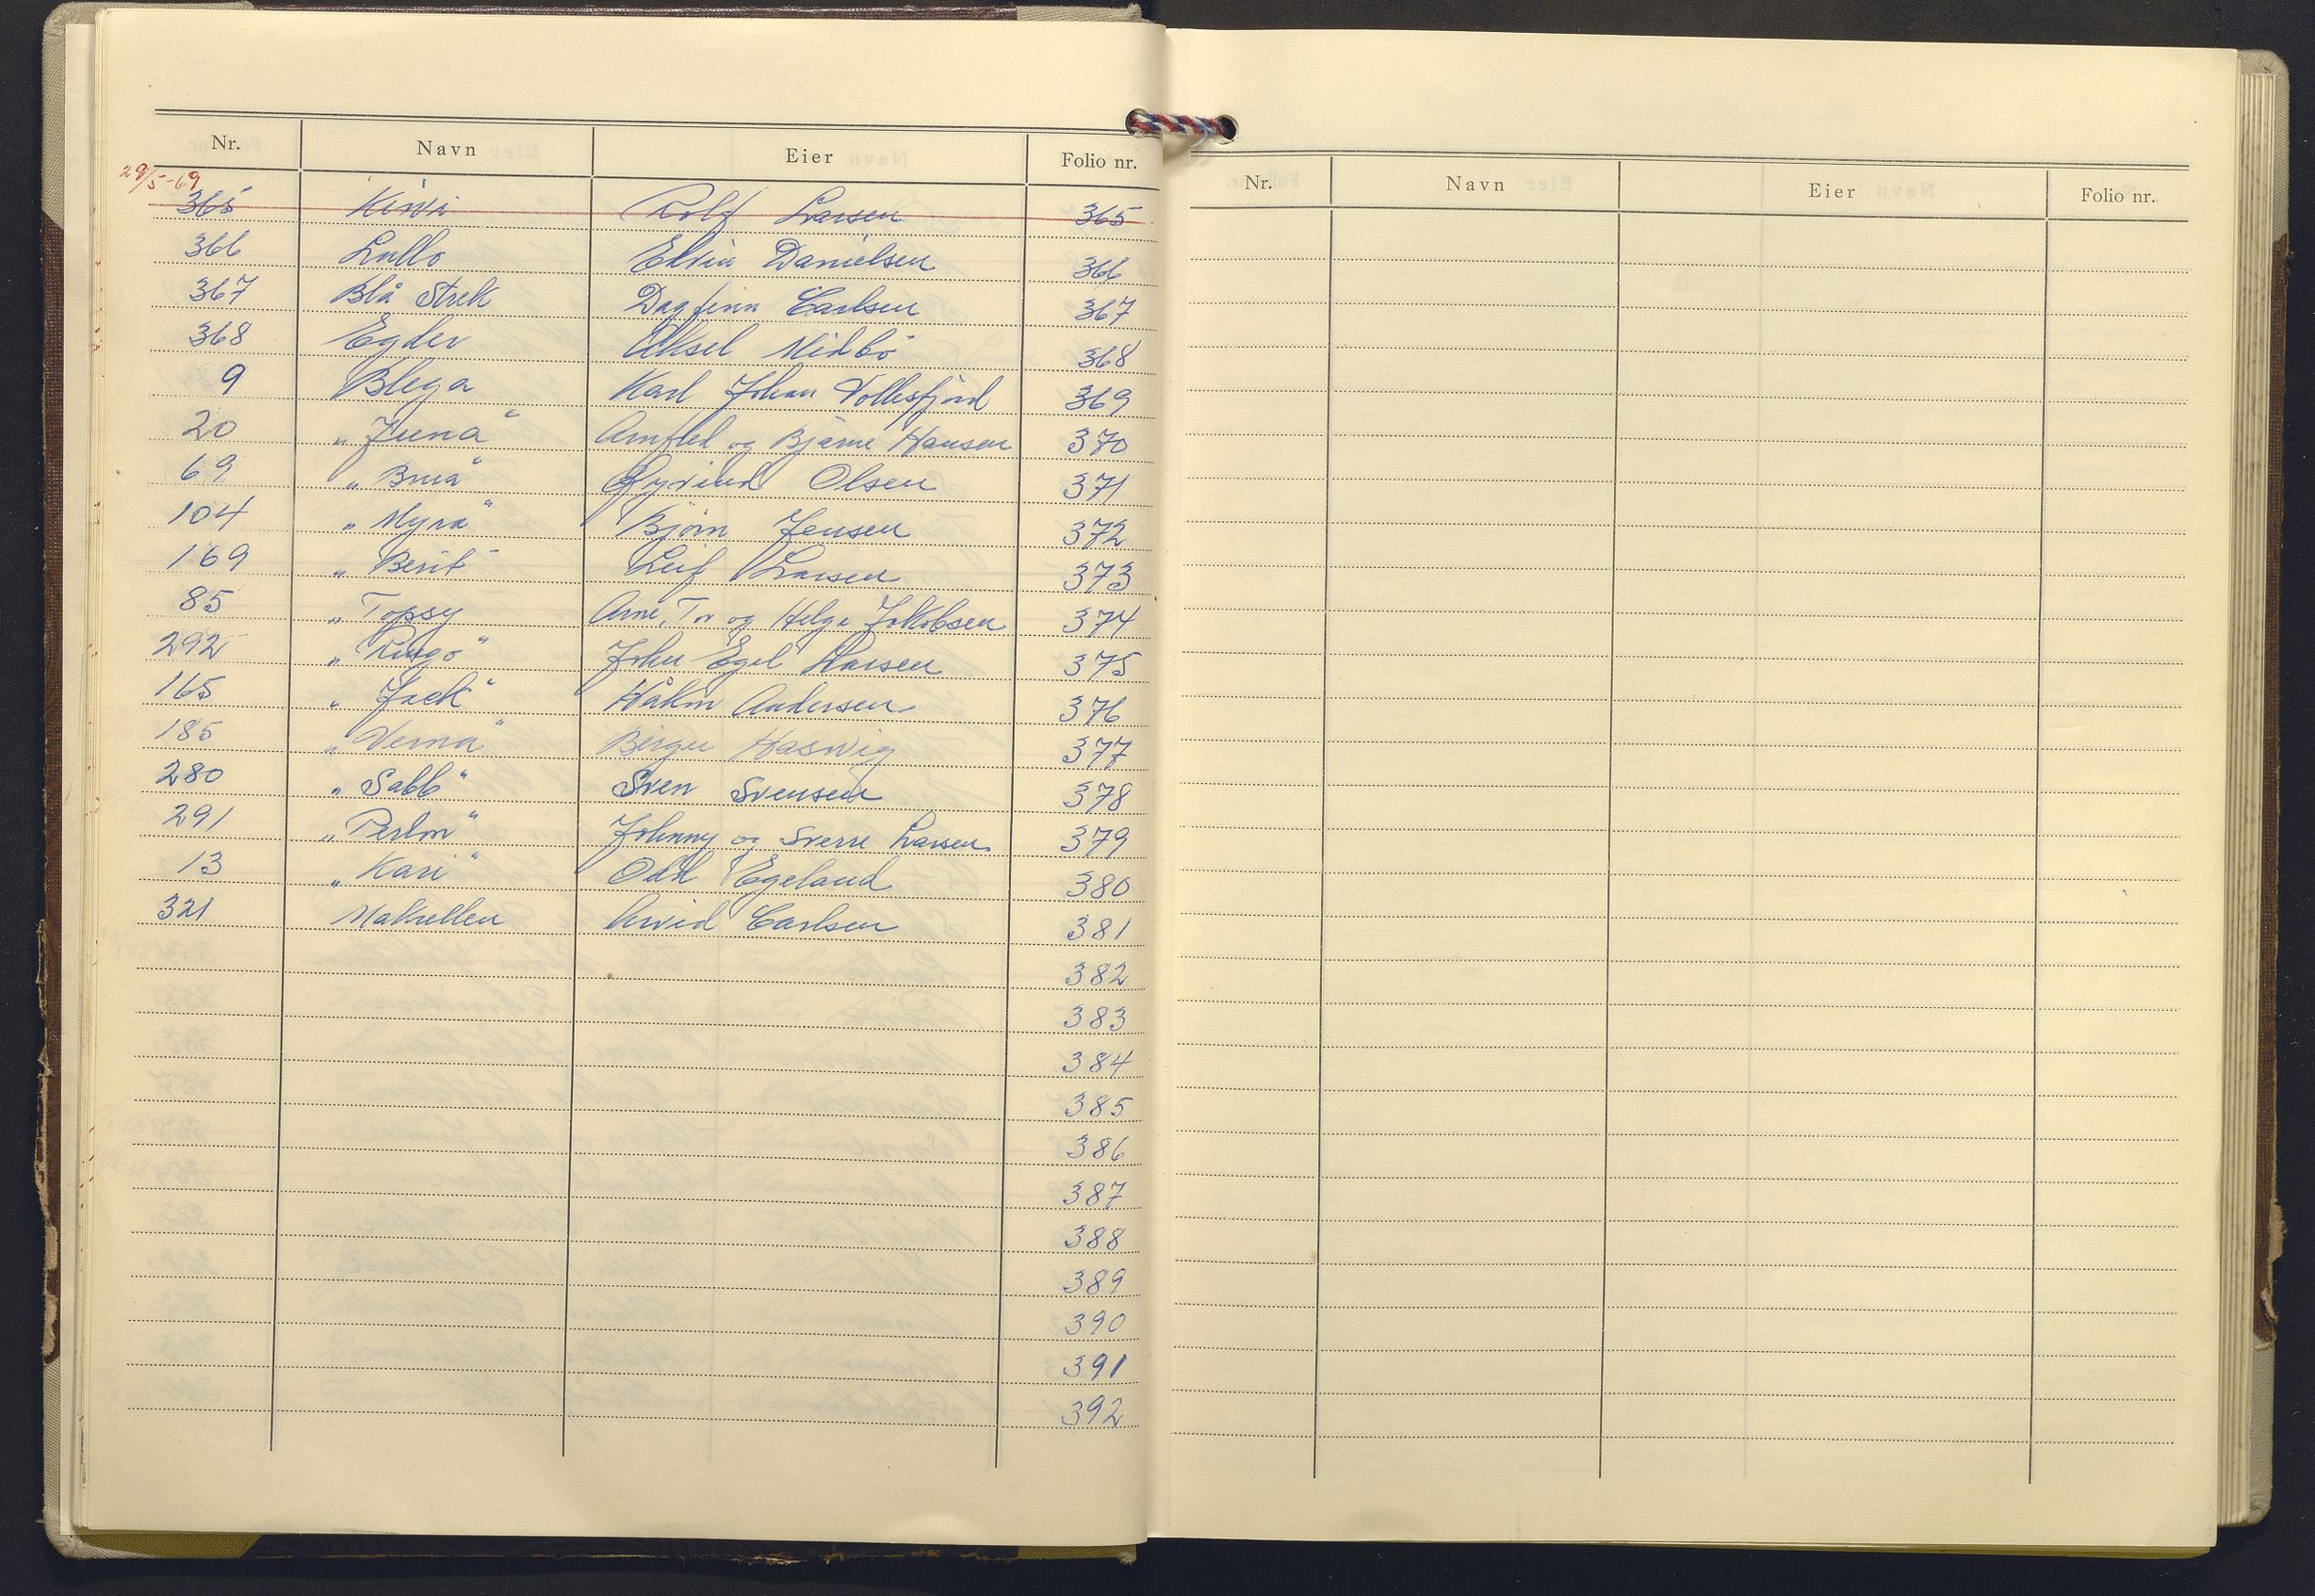 Nr. Navn Eier Folio nr.
29/5-69
365 Kirvi Rolf Larsen 365
366 Lullo Elvin Danielsen 366
367 Blå Strek Dagfinn Carlsen 367
368 Egder Aksel Midbö 368
9 Blega Karl Johan Vollesfjord 369
20 „Juna“ Arnfled og Bjarne Hansen 370
69 „Brua“ Øyvind Olsen 371
104 „Myra“ Bjørn Jensen 372
169 „Berit“ Leif Larsen 373
85 „Topsy Arne, Tor og Helge Jakobsen 374
292 „Ringo“ John Egel Larsen 375
165 „Jack“ Håkon Andersen 376
185 „Verna“ Birger Haswig 377
280 „Sabb“ Sven Svensen 378
291 „Perlon“ Johnny og Sverre Larsen 379
13 „Kari“ Odd Egeland 380
321 Makrellen Arvid Carlsen 381
382
383
384
385
386
387
388
389
390
391
392
Nr. Navn Eier Folio nr.